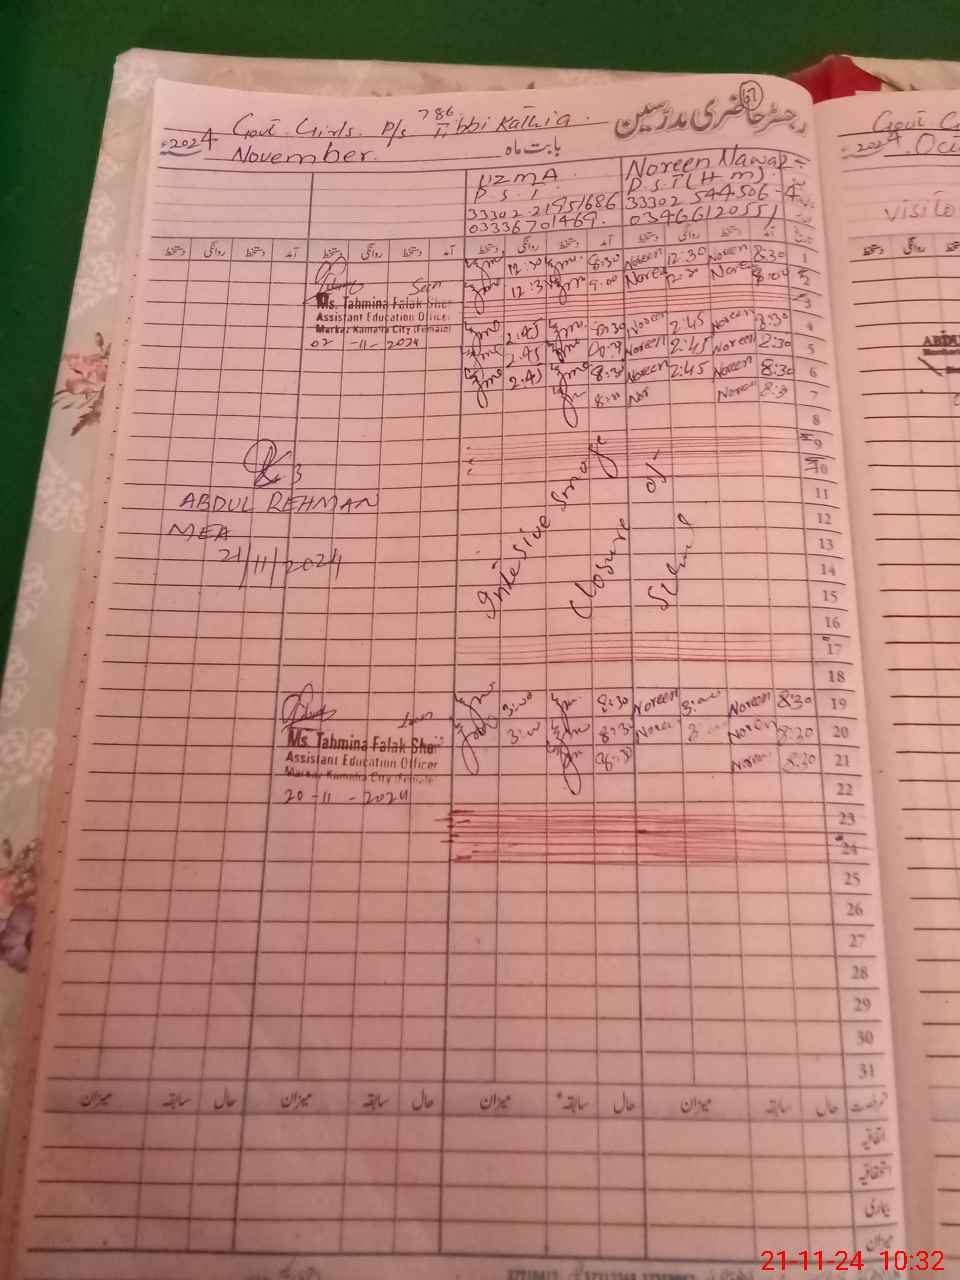 رجسٹر حاضری مدرّسین
67
786
Govt. Girls. P/s Tibbi Kathia.
2024 November. بابت ماہ
UZMA. Noreen Nawaz
P.S.T. P.S.T (H.M).
33302 544506-4
03336701469. 03466120551
دستخط روانگی دستخط آمد دستخط روانگی دستخط آمد دستخط روانگی دستخط آمد دستخط روانگی دستخط آمد
12:30 8:30 Noreen 12:30 Noreen 8:30 1
9:00 Noreen Noreen 8:00 2
3
2.45 8:30 Noreen 2:45 Noreen 8:30 4
2.45 Noreen 2:45 Noreen 8:30 5
2.45 8:30 Noreen 2:45 Noreen 8:30 6
Nor Noreen 8:30 7
Seen
Ms. Tahmina Falak Sher
Assistant Education Officer
Markaz Kamalia City (Female)
02 -11- 2024
8
9
10
11
12
13
14
15
16
17
18
ABDUL REHMAN
MEA
21/11/2024
Smoge
Closure of
3:00 8:30 Noreen 3:00 Noreen 8:30 19
3:00 8:30 Noreen 3:00 Noreen 8:30 20
8:30 Noreen 8:30 21
Seen
Ms. Tahmina Falak Sher
Assistant Education Officer
Markaz Kamalia City (Female)
20 -11 - 2024
22
23
24
25
26
27
28
29
30
31
رخصت حال سابقہ میزان حال سابقہ میزان حال سابقہ میزان حال سابقہ میزان
اتفاقیہ
استحقاقیہ
بیماری
میزان
Govt
2024 Oct
visito
ABDU
21-11-24 10:32